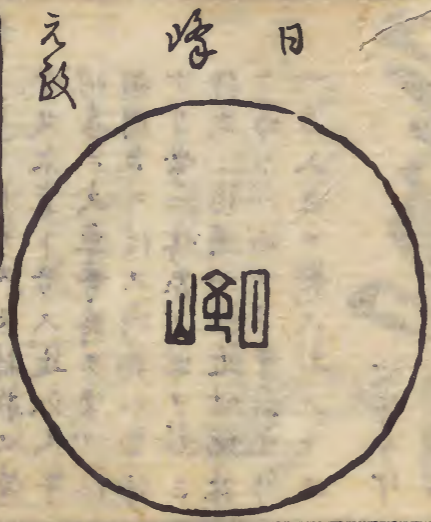 日峰
元政
日峰